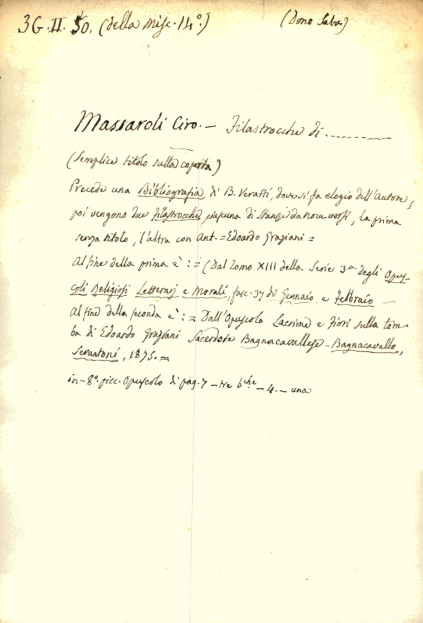 3G.II.50. (della Misc. 14°.) (Dono Saba)
Massaroli Ciro. — Filastrocche di ..........
(Semplice titolo sulla coperta)
Precede una Bibliografia di B. Veratti, dove si fa elogio dell'autore,
poi vengono due filastrocche ciascuna di stanze da nove versi, la prima
senza titolo, l'altra con Ant. = Edoardo Graziani =
Al fine della prima è : = (Dal Tomo XIII della Serie 3a degli Opus-
coli Religiosi Letterarj e Morali, fasc. 37 di Gennaio e Febbraio —
Al fine della seconda è : = Dall'Opuscolo Lacrime e Fiori sulla tom-
ba di Edoardo Graziani Sacerdote Bagnacavallese - Bagnacavallo,
Serantoni, 1875. =
in-8°. picc. Opuscolo di pag. 7 — tre b.che — 4. — una